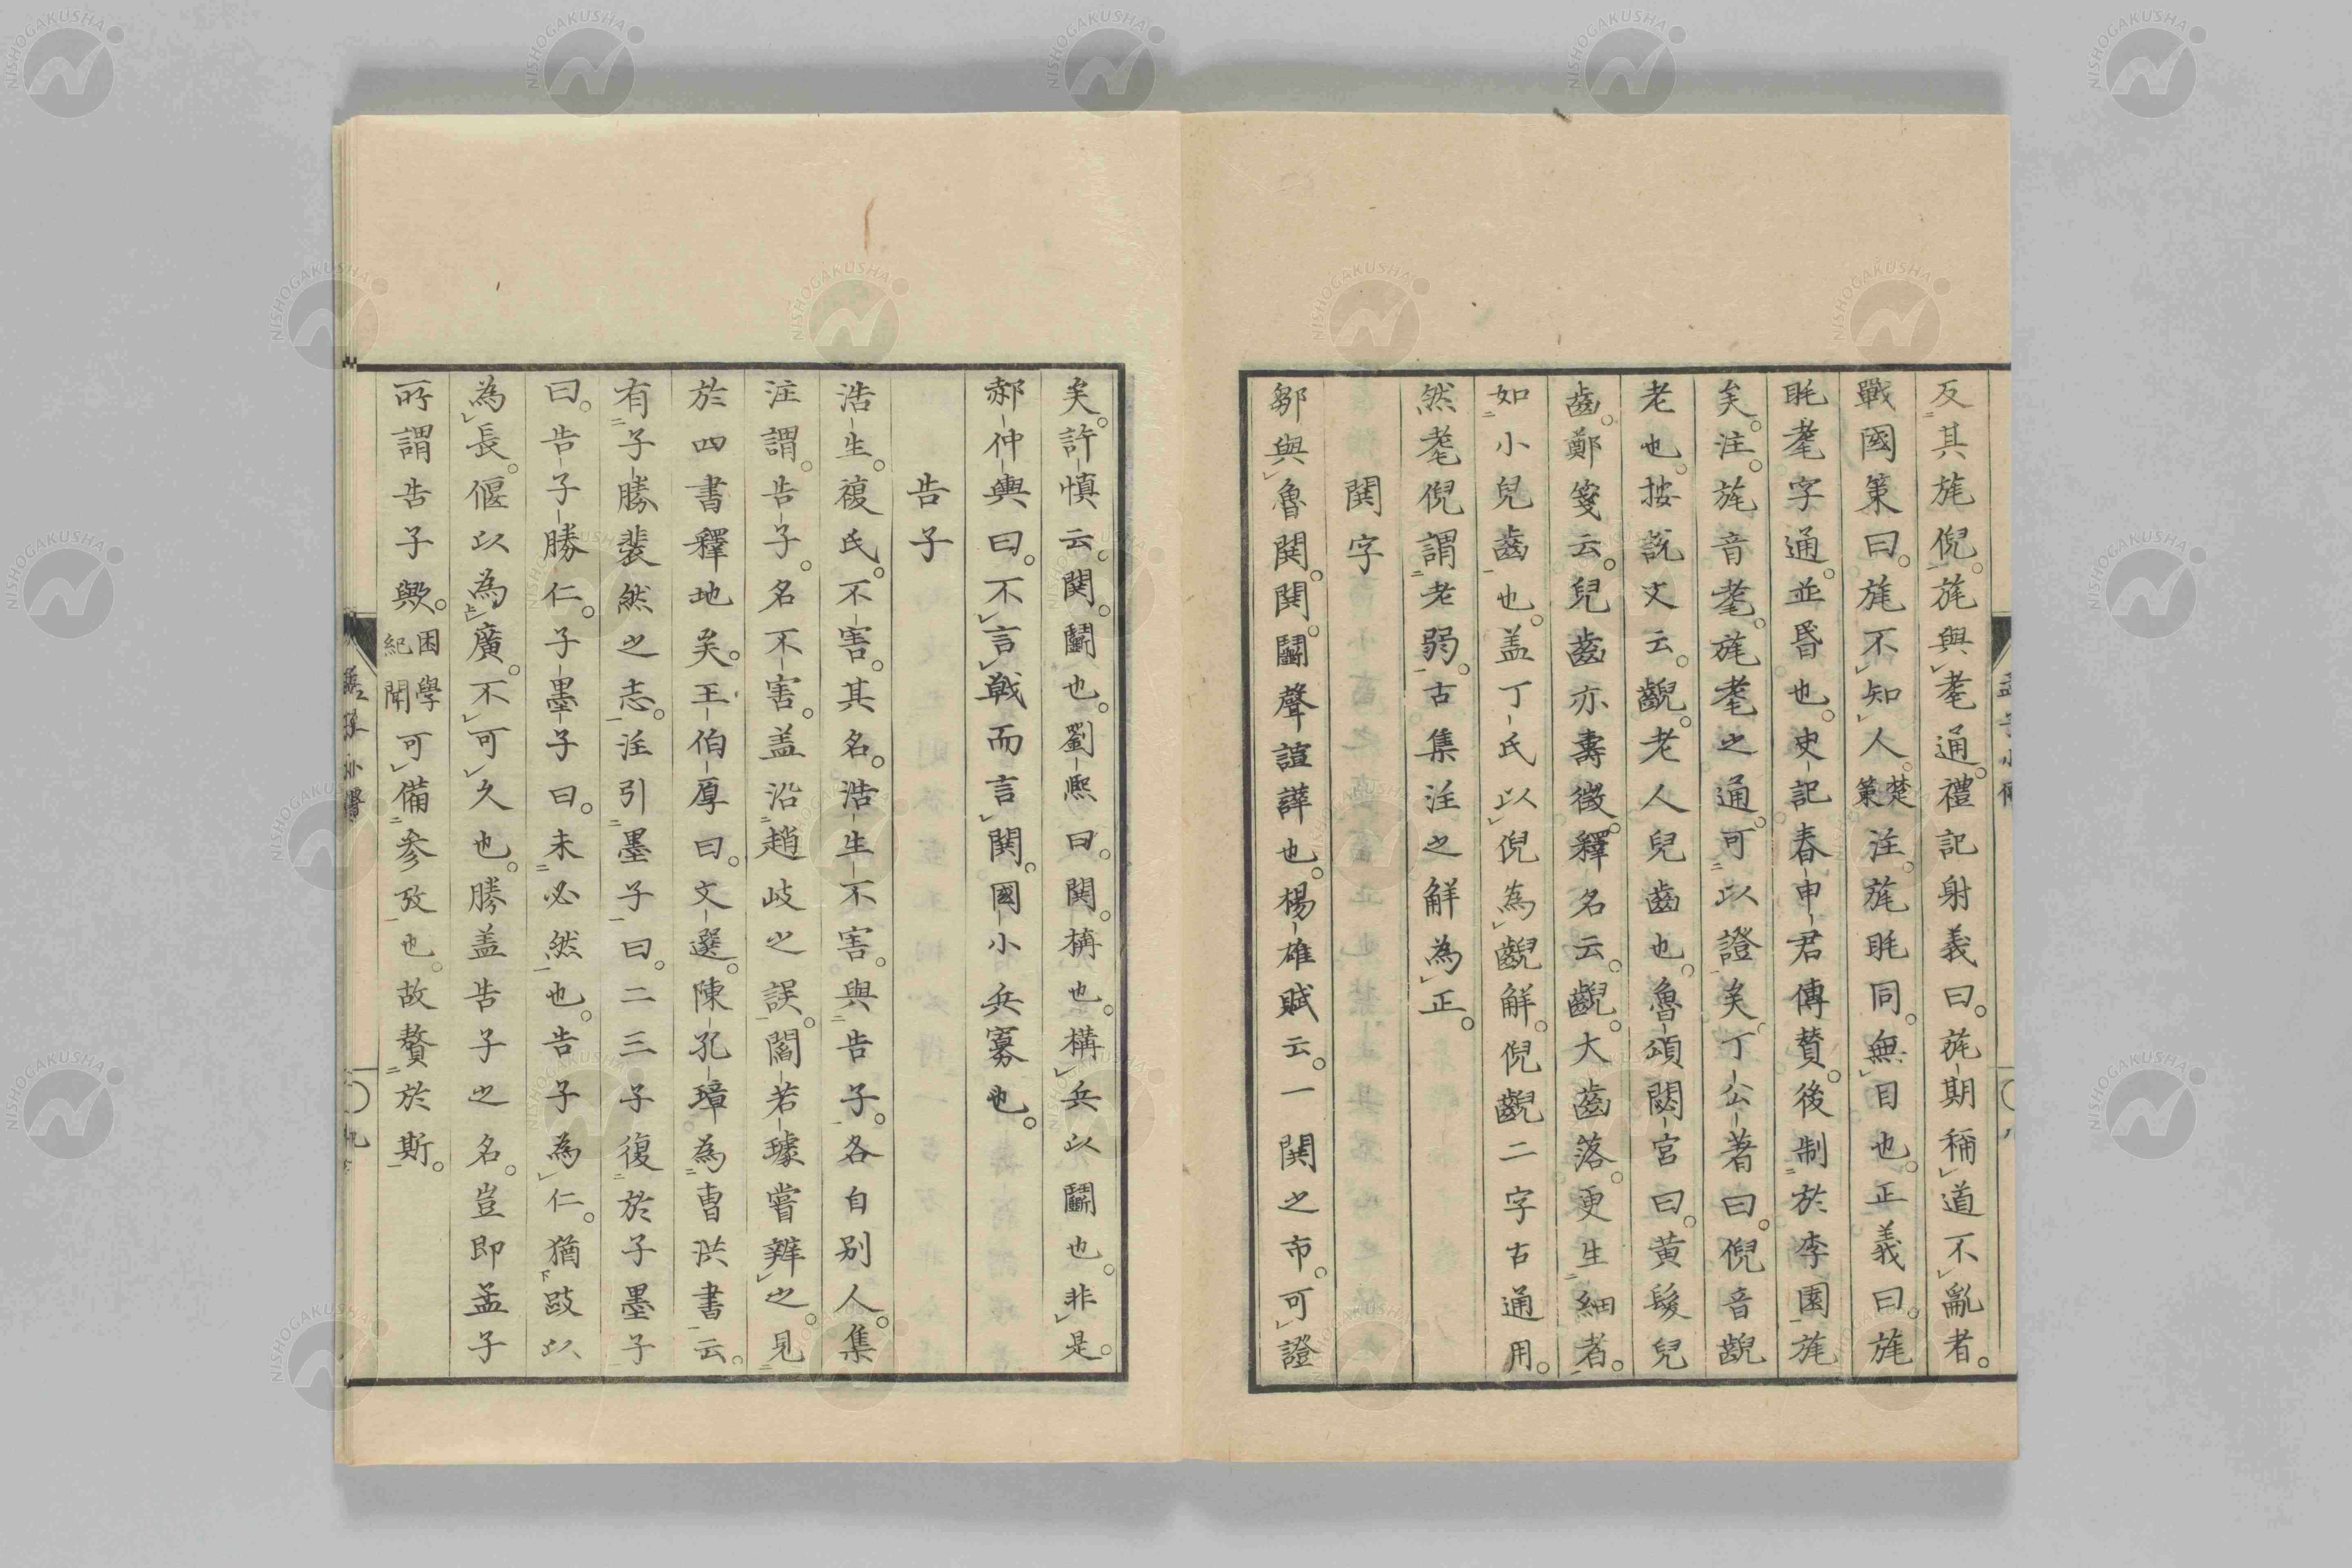 反其旄倪旄與耄通禮記射義曰旄期稱道不亂者
戰國策曰旄不知人楚策注旄眊同無目也正義曰旄
眊耄字通並昏也史記春申君傳贊後制於李園旄
矣注旄音耄旄耄之通可以證矣丁公著曰倪音齯
老也按說文云齯老人兒齒也魯頌閟宮曰黃髮兒
齒鄭箋云兒齒亦壽徵釋名云齯大齒落更生細者
如小兒齒也盖丁氏以倪為齯解倪齯二字古通用
然耄倪謂老弱古集注之解為正
鬨字
鄒與魯鬨鬨鬭聲諠譁也楊雄賦云一鬨之市可證
矣許慎云鬨鬭也劉熙曰鬨構也構兵以鬭也非是
郝仲輿曰不言戰而言鬨國小兵寡也
告子
浩生複氏不害其名浩生不害與告子各自別人集
注謂告子名不害盖沿趙岐之誤閻若璩嘗辨之見
於四書釋地矣王伯厚曰文選陳孔璋為曹洪書云
有子勝裴然之志注引墨子曰二三子復於子墨子
曰告子勝仁子墨子曰未必然也告子為仁猶跂以
為長偃以為廣不可久也勝盖告子之名豈即孟子
所謂告子歟困學紀聞可備參攷也故贅於斯